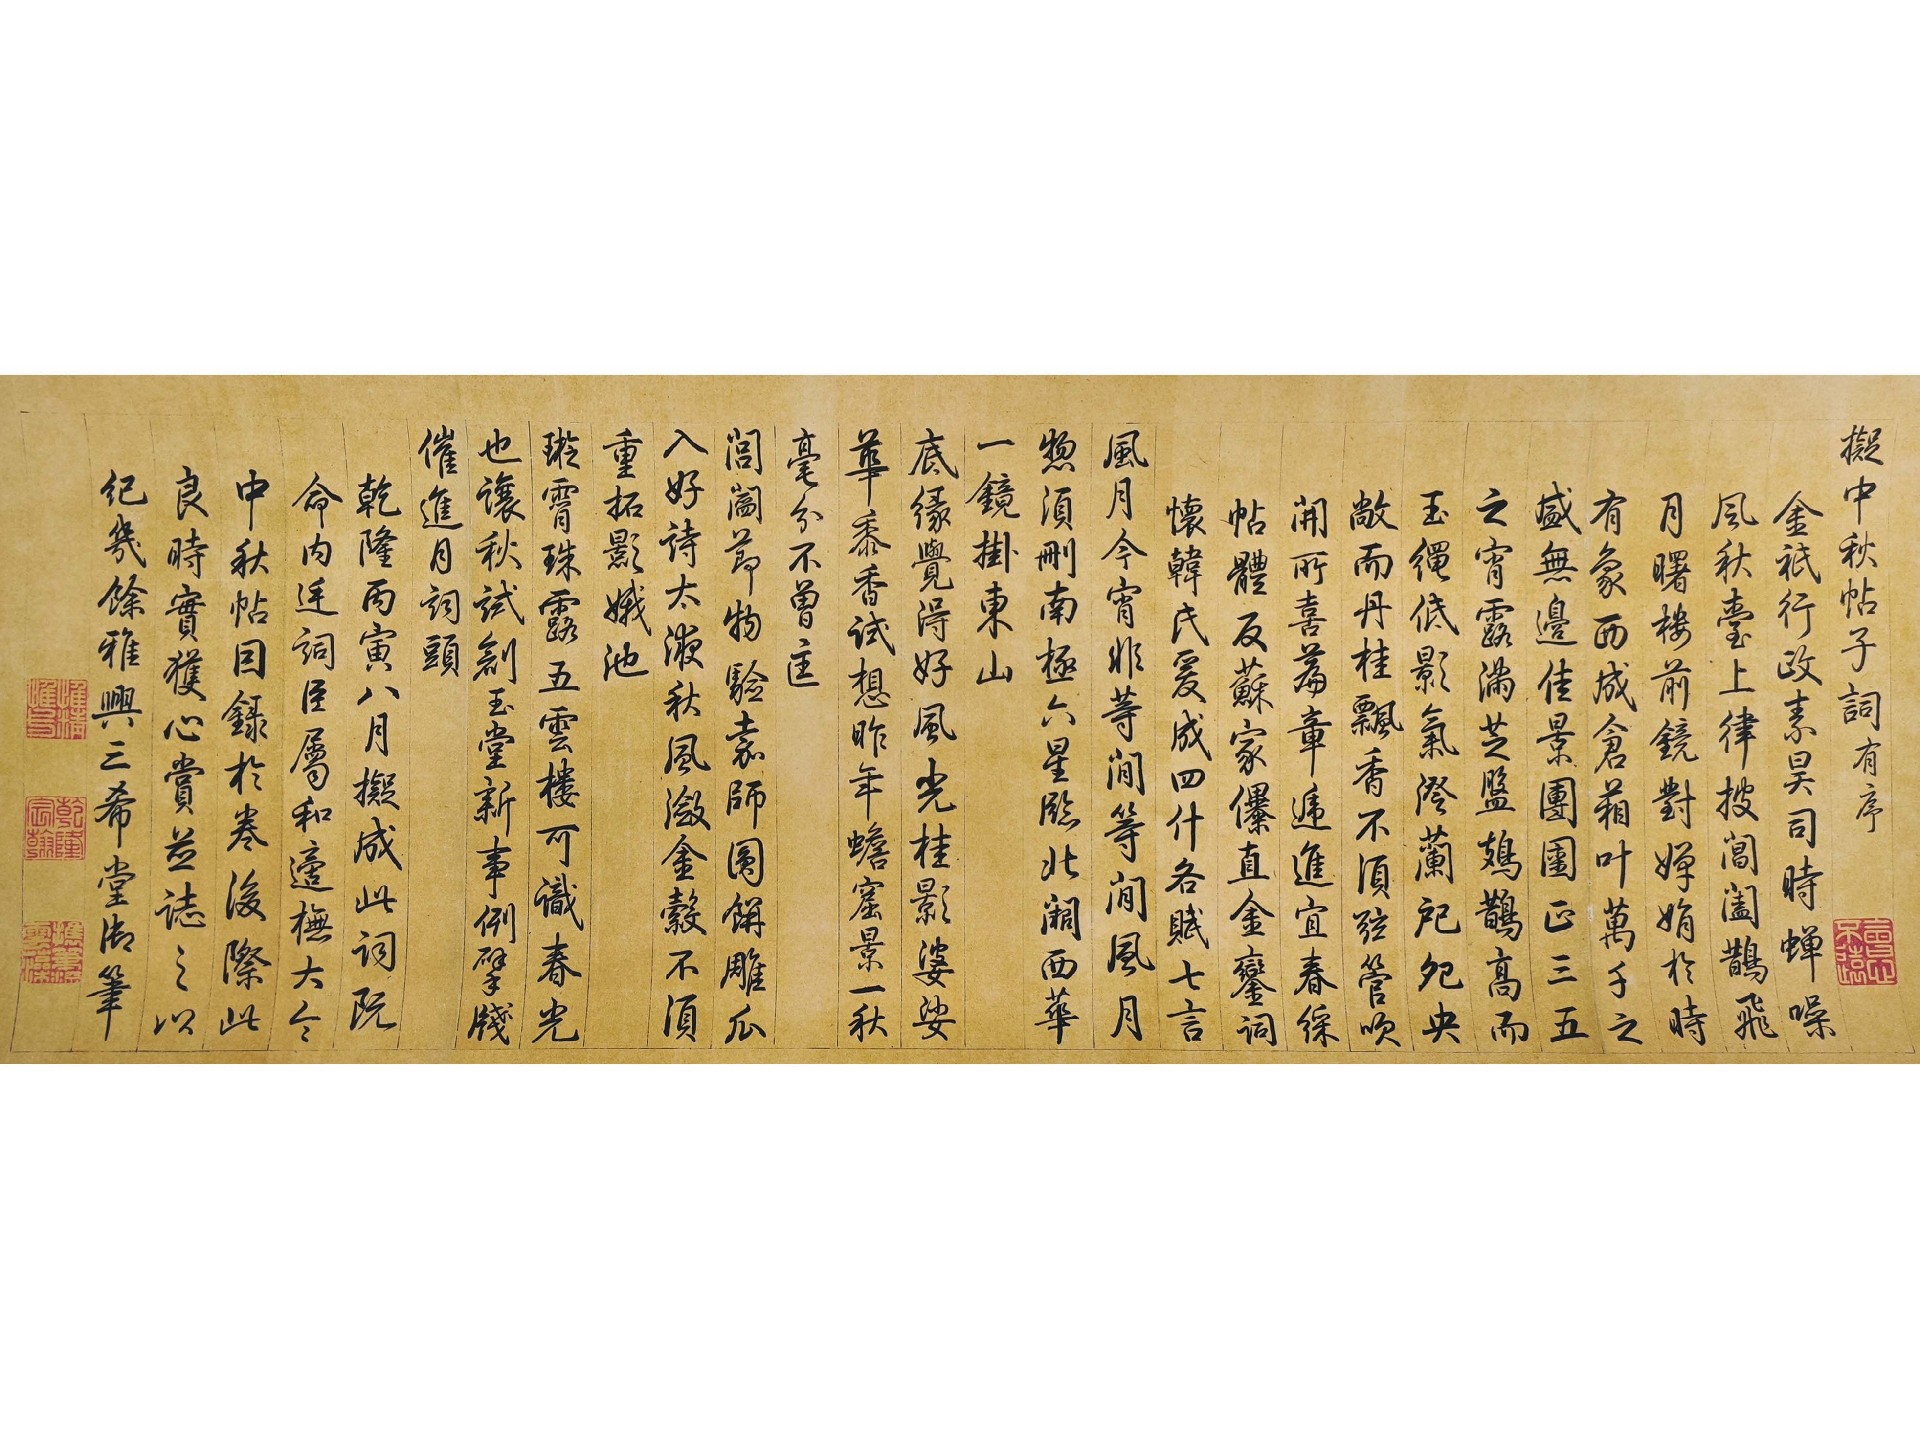 擬中秋帖子詞有序
金祇行政素昊司時蟬噪
風秋臺上律披閶闔鵲飛
月曙樓前鏡對嬋娟於時
有象西成倉葙叶萬千之
盛無邊佳景團圞正三五
之宵露滿芝盤鳷鵲高而
玉繩低影氣澄蘭戺夗央
敞而丹桂飄香不須弦管吹
開所喜篇章遞進宜春綵
帖體反蘇家儤直金鑾詞
懷韓氏爰成四什各賦七言
風月今宵非等閒等閒風月
惣須刪南極六星臨北闕西華
一鏡掛東山
底緣覺得好風光桂影婆娑
華黍香試想昨年蟾窟景一秋
毫分不曾圭
閶闔節物驗袁師圓餅雕瓜
入好詩太液秋風瀲金縠不須
重拓影娥池
璇霄珠露五雲樓可識春光
也讓秋試創玉堂新事例擘牋
催進月詞頭
乾隆丙寅八月擬成此詞既
命內廷詞臣屬和適橅大令
中秋帖因錄於卷後際此
良時實獲心賞並誌之以
紀幾餘雅興三希堂御筆
乾隆宸翰